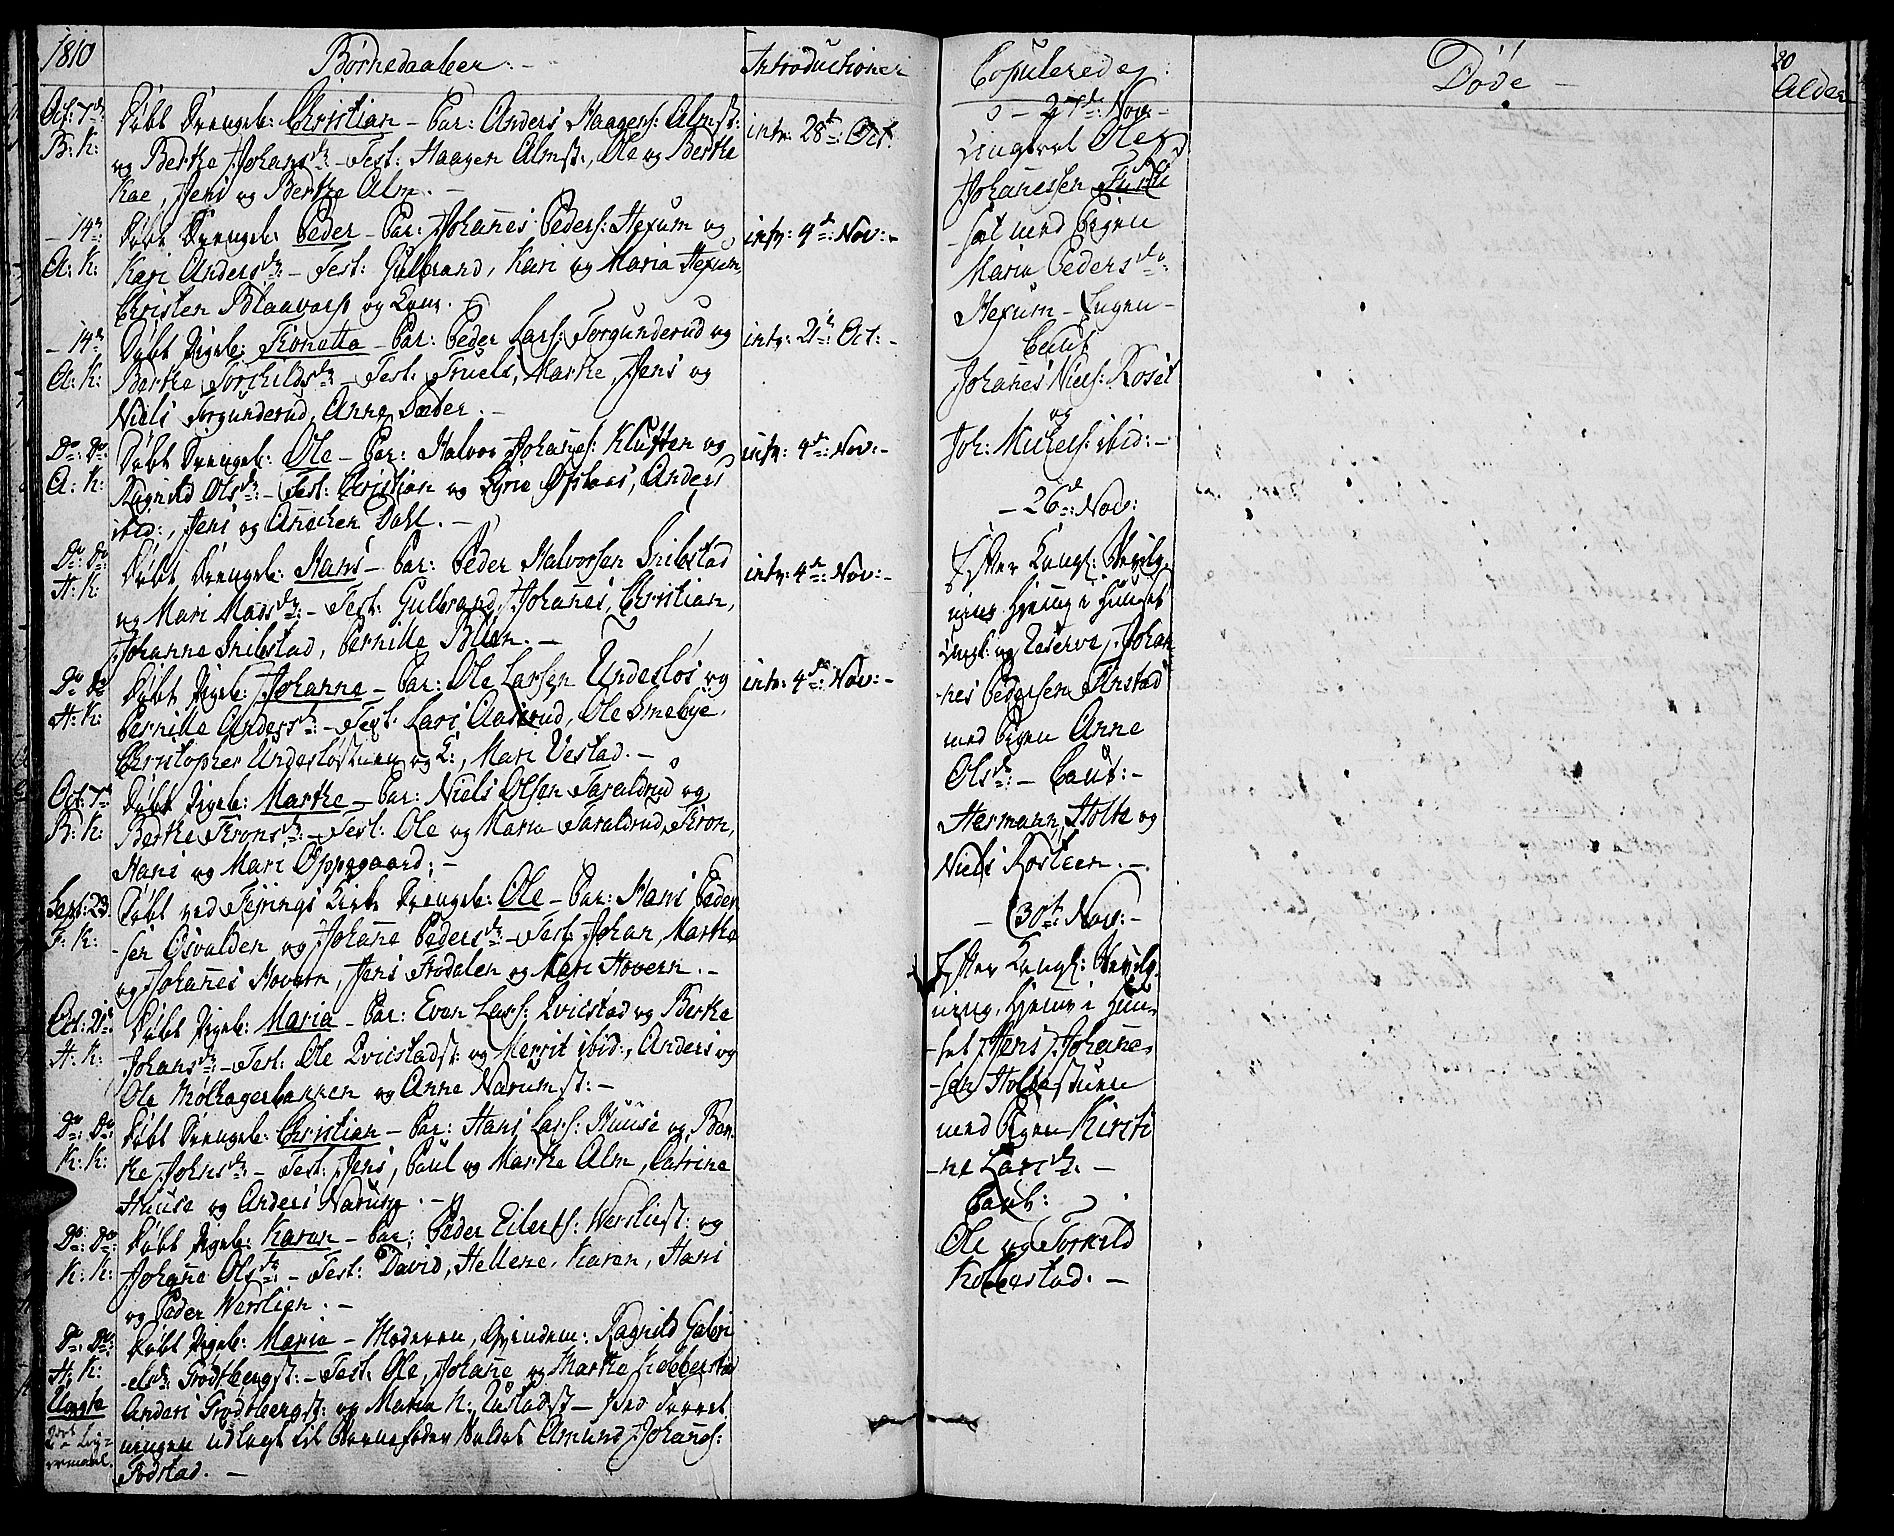 1810
Børnedaaber. -
Introductioner
Oct: 7de
B: K:
Døbt Drengeb: Christian - Par: Anders Haagens: Almst:
og Berthe Johansdr: - Test: Haagen Almst:, Ole og Berthe
Kae, Jens og Berthe Alm. -
intr: 28de Oct:
- 14de
A: K:
Døbt Drengeb: Peder - Par: Johanes Peders: Hexum og
Kari Andersdr: - Test: Gulbrand, Kari og Maria Hexum
Christen Blaavarp og Kone. -
intr: 4de: Nov: -
- 14de
A: K:
Døbt Pigeb: Tronetta - Par: Peder Lars: Torgunderud og
Berthe Torchildsdr: - Test: Truels, Marthe, Jens og
Niels Torgunderud, Anne Sæder. -
intr: 21de: Oct: -
Do: Do:
A: K:
Døbt Drengeb: Ole - Par: Halvor Johanes: Kluften og
Ragnild Olsdr: - Test: Christian og Syrie Øistaas, Anders
ibid:, Jens og Anichen Dahl. -
intr: 4de: Nov: -
Do: Do:
H: K:
Døbt Drengeb: Hans - Par: Peder Halvorsen Snibstad
og Mari Mansdr: - Test: Gulbrand, Johanes, Christian,
Johanne Snibstad, Pernille Blien. -
intr: 4de: Nov: -
Do Do
H: K:
Døbt Pigeb: Johanne - Par: Ole Larsen Undeslos og
Pernille Andersdr: - Test: Lars Aaserud, Ole Smebye,
Christopher Undesløstuen og K:, Mari Vestad. -
intr: 4de: Nov: -
Oct: 7de
B: K:
Døbt Pigeb: Marthe - Par: Niels Olsen Taraldrud og
Berthe Tronsdr: - Test: Ole og Maria Taraldrud, Tron,
Hans og Mari Oppegaard: -
Sept: 23.
F: K:
Døbt ved Fejrings Kirke Drengeb: Ole - Par: Hans Peder-
sen Osvalden og Johane Pedersdr: - Test: Johan, Marthe
og Johanes Hovern, Jens Frodalen og Mari Hovern. -
Oct: 21de
H: K:
Døbt Pigeb: Maria - Par: Even Lars: Qvicstad og Berthe
Johansdr: - Test: Ole Qvicstadst: og Merrit ibid:, Anders og
Ole Mølhagerbakken og Anne Narumst: -
Do: Do:
K: K:
Døbt Drengeb: Christian - Par: Hans Lars: Huuse og Ber-
the Johnsdr: - Test: Jens, Paul og Marthe Alm, Catrine
Huuse og Anders Narum. -
Do: Do:
K: K:
Døbt Pigeb: Karen - Par: Peder Eilerts: Werslist: og
Johane Olsdr: - Test: David, Hellene, Karen, Hans
og Peder Werslien. -
Do: Do:
H: K:
Uægte
Døbt Pigeb: Maria - Moderen, Qvindem: Ragnild Gabri
-elsdr: Grøtbergst: - Test: Ole, Johane og Marthe Kobberstad
Anders Grøtbergst: og Maria N: Rustadst - Ved Forret
ningen udlagt til Barnefader Soldat Amund Johanes:
Fodstad. -
Copulerede:
- 27de: Nov: -
Ungkarl Ole
Johanessen
-sæt med Pigen
Maria Pedersdr:
Hexum - Ingen -
Caut:
Johanes Niels: Roset
og
Joh: Michels: ibid: -
- 26de: Nov:
Efter Kongl: Bevilg-
ning hjeme i Huuset
Ungk: og Reserve Johan-
nes Pedersen Finstad
med Pigen Anne
Olsdr: - Caut: -
Hermann Holte og
Niels Rosteen. -
- 30te Nov: -
Efter Kongl: Bevilg-
ning, hjeme i Huu-
-set Jens Johane-
-sen Holtestuen
med Pigen Kirsti
-ne Larsdr: -
Caut:
Ole og Torkild
Kolbestad. -
Døde -
20
Alder